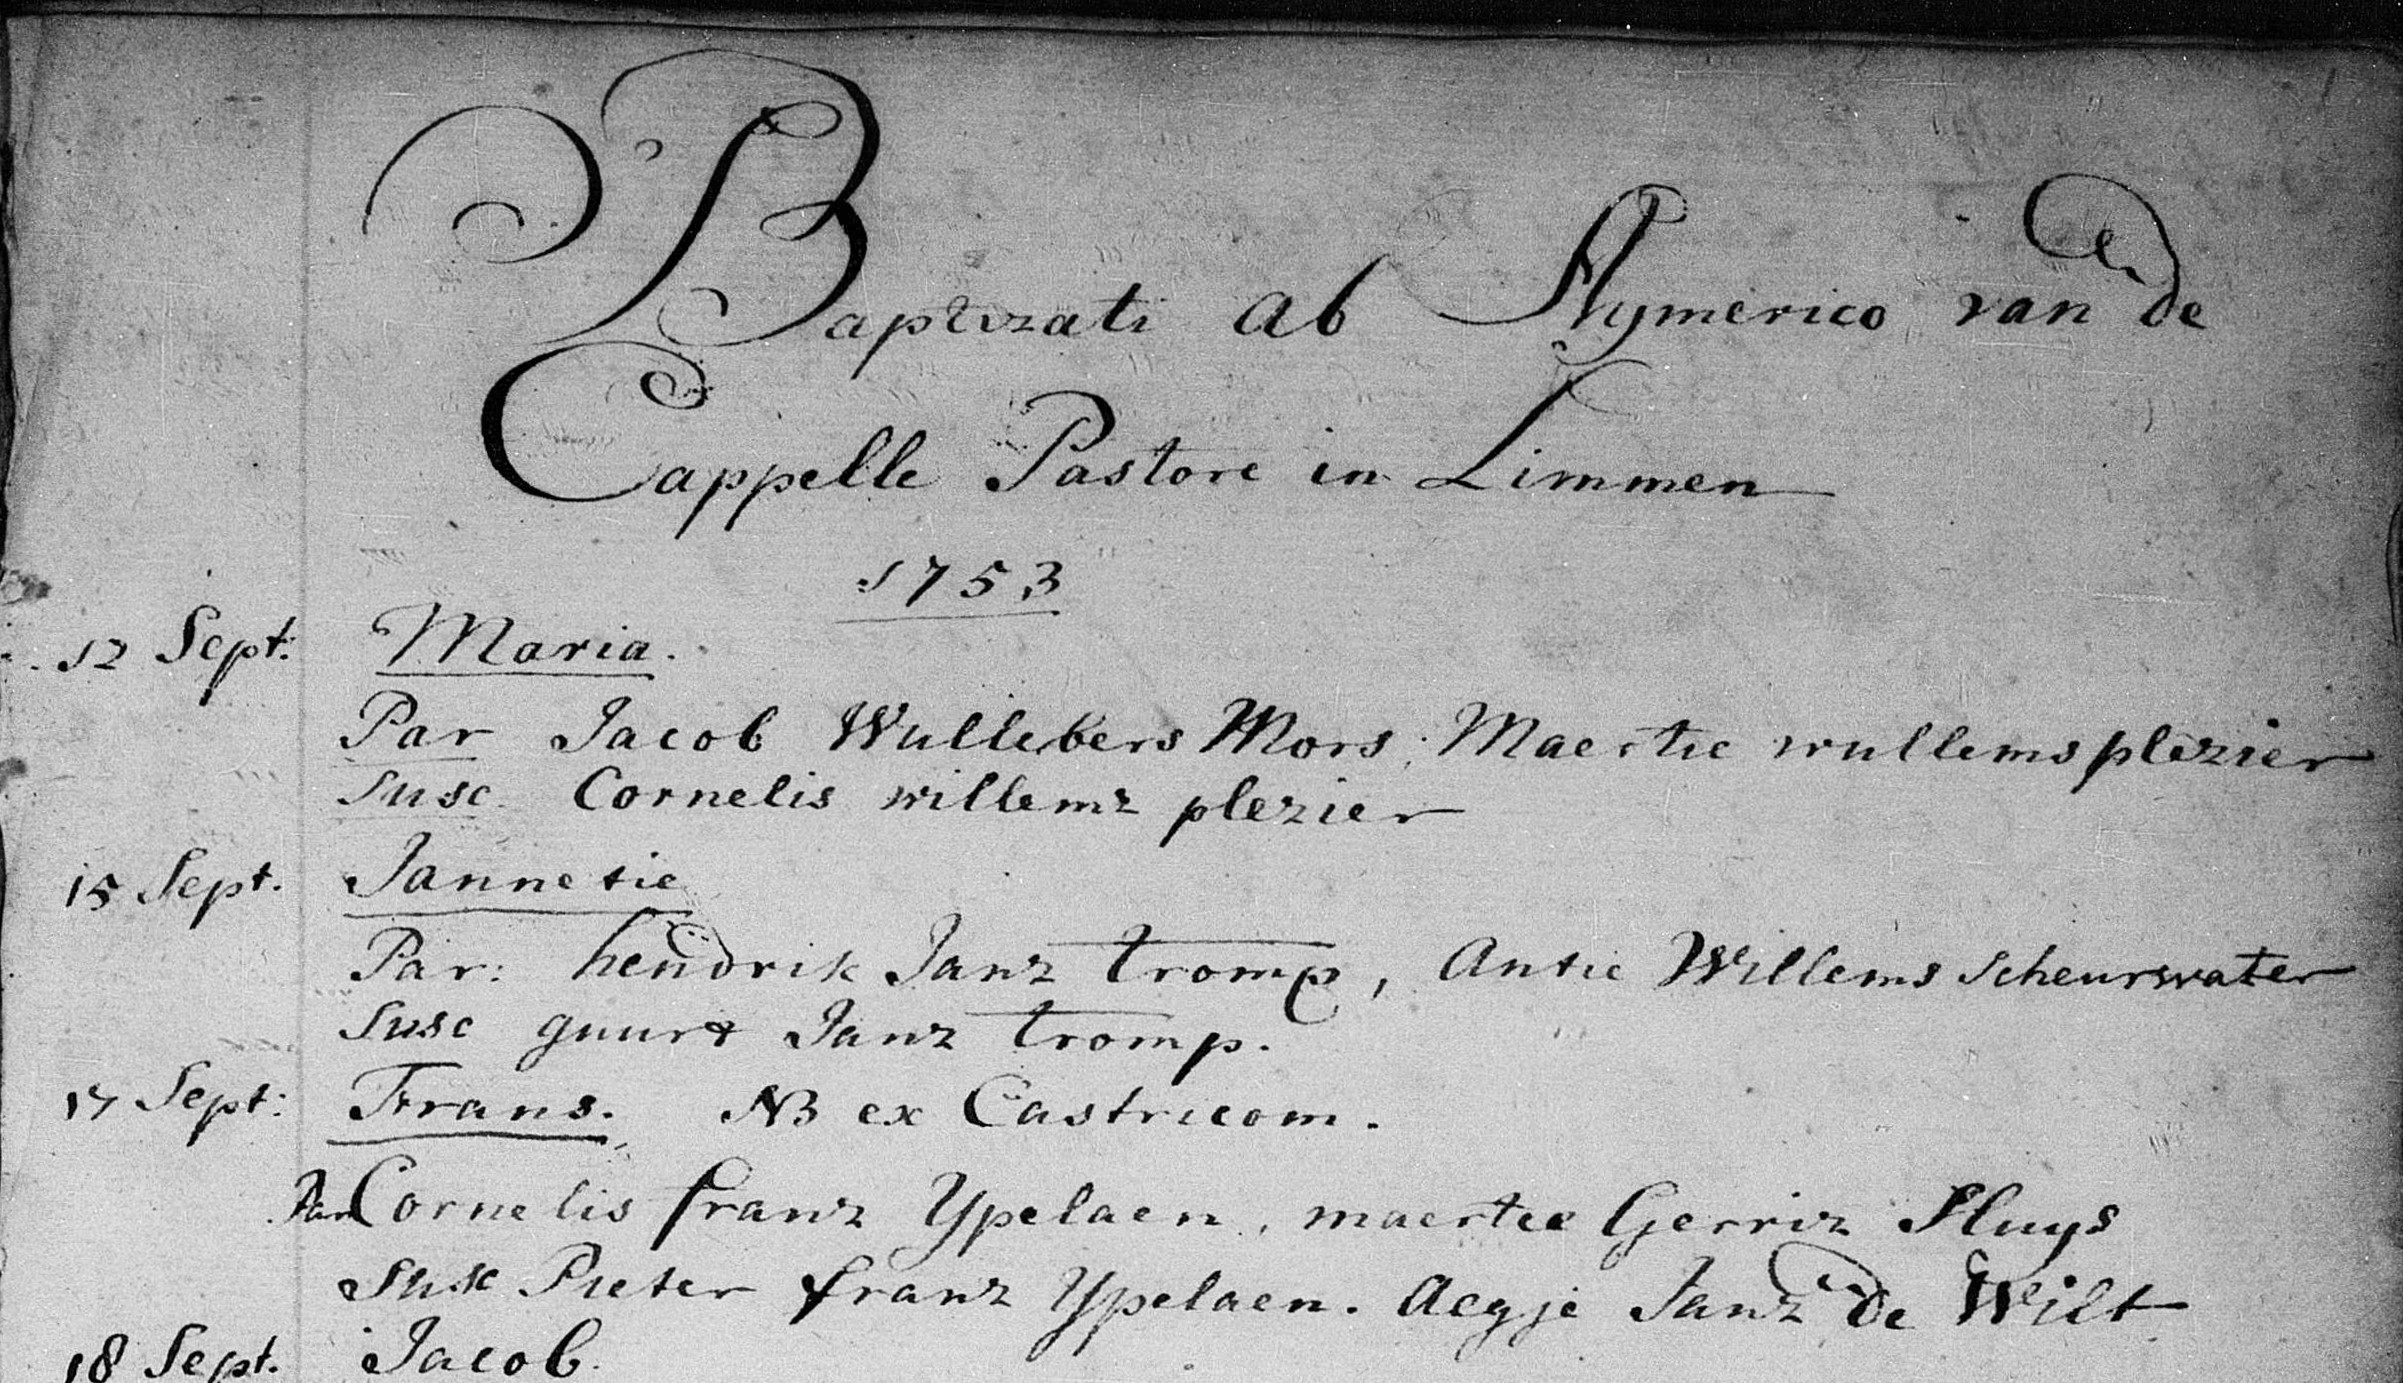 Baptizati ab Aymerico van de
Cappelle Pastore in Limmen
1753
12 Sept. Maria.
Par Jacob Wullebers Mors, Maertie wullems plezier
Susc. Cornelis willemz plezier
15 Sept. Jannetie
Par: hendrik Janz tromp, Antie Willems Scheurwater
Susc guurt Janz tromp.
17 Sept: Frans. NB ex Castricom.
Par Cornelis franz Ypelaen, maertie Gerriz Sluys
Susc Pieter franz Ypelaen. Aegje Janz de Wilt
18 Sept. Jacob.